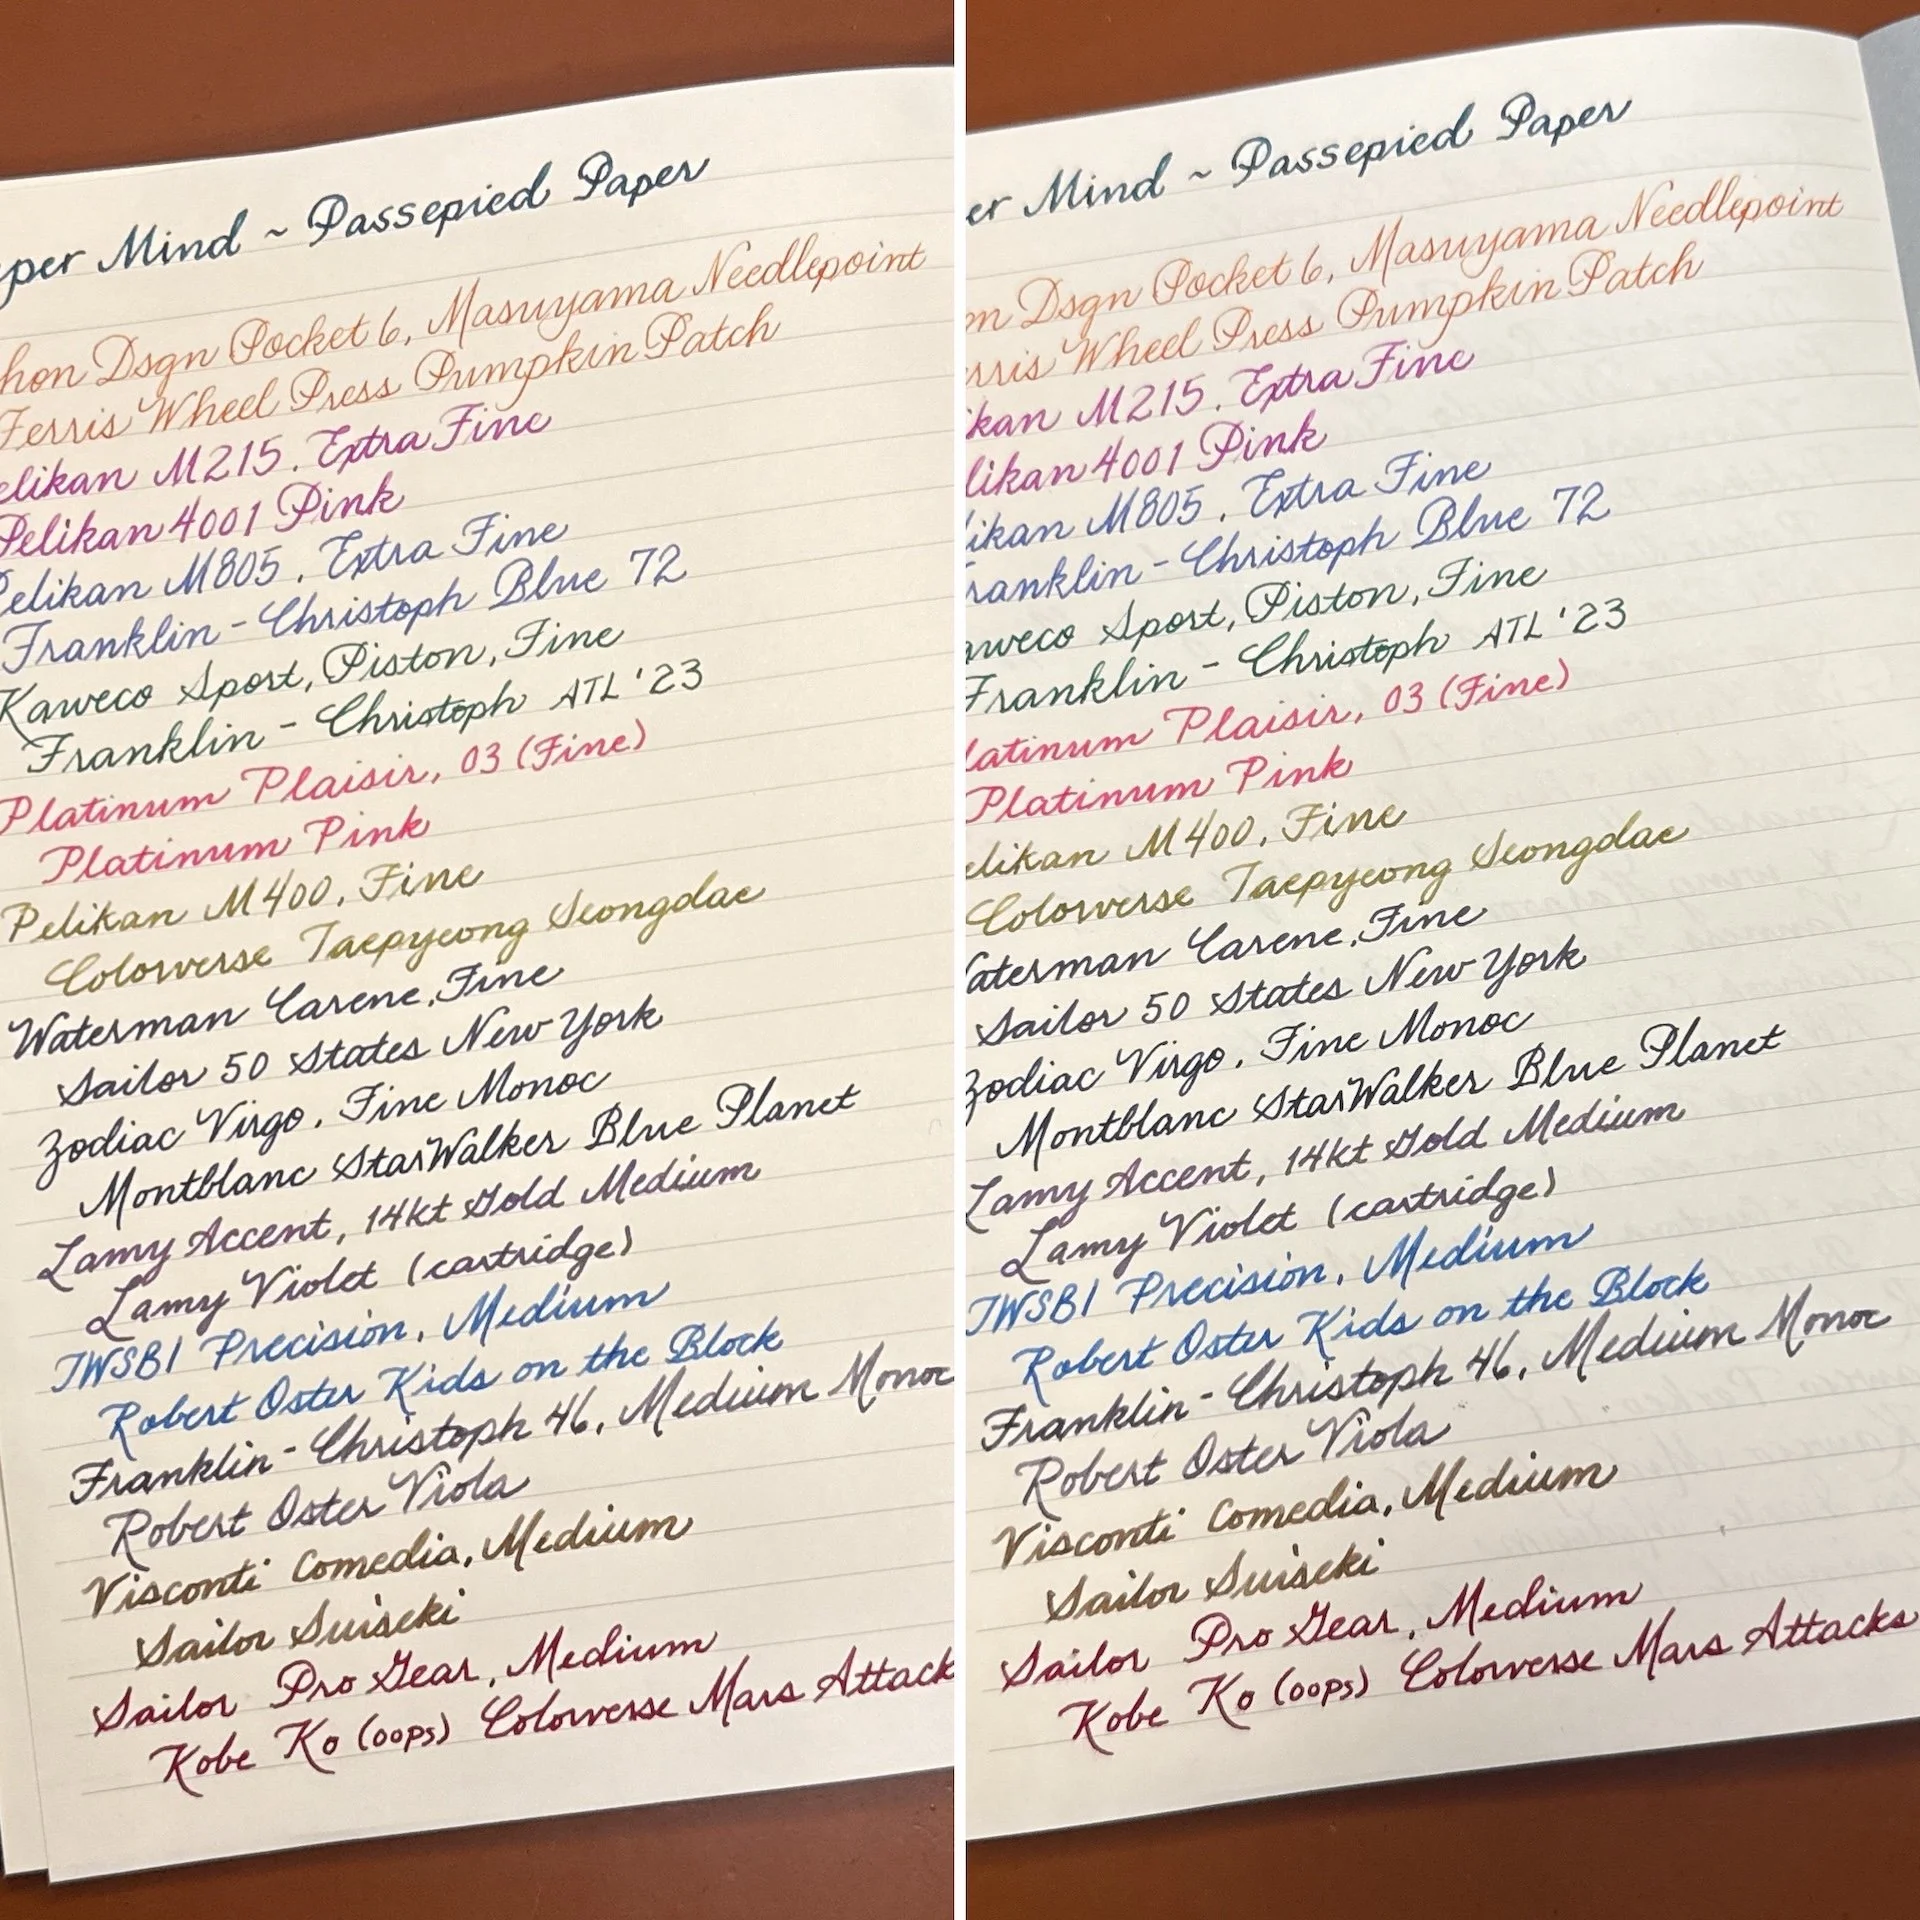 per Mind ~ Passepied Paper
hon Dsgn Pocket 6, Masuyama Needlepoint
Ferris Wheel Press Pumpkin Patch
elikan M215. Extra Fine
Pelikan 4001 Pink
Pelikan M805. Extra Fine
Franklin-Christoph Blue 72
Kaweco Sport, Piston, Fine
Franklin - Christoph ATL '23
Platinum Plaisir, 03 (Fine)
Platinum Pink
Pelikan M400, Fine
Colorverse Taepyeong Seongdae
Waterman Carene, Fine
Sailor 50 States New York
Zodiac Virgo. Fine Monoc
Montblanc StarWalker Blue Planet
Lamy Accent, 14kt Gold Medium
Lamy Violet (cartridge)
TWSBI Precision, Medium
Robert Oster Kids on the Block
Franklin-Christoph 46, Medium Monoc
Robert Oster Viola
Visconti Comedia, Medium
Sailor Suiseki
Sailor Pro Gear, Medium
Kobe Ko (oops) Colorverse Mars Attack
er Mind ~ Passepied Paper
on Dsgn Pocket 6, Masuyama Needlepoint
erris Wheel Press Pumpkin Patch
ikan M215. Extra Fine
likan 4001 Pink
likan M805. Extra Fine
Franklin-Christoph Blue 72
aweco Sport, Piston, Fine
Franklin - Christoph ATL '23
latinum Plaisir, 03 (Fine)
Platinum Pink
elikan M400, Fine
Colorverse Taepyeong Seongdae
Waterman Carene, Fine
Sailor 50 States New York
Zodiac Virgo. Fine Monoc
Montblanc StarWalker Blue Planet
Lamy Accent, 14kt Gold Medium
Lamy Violet (cartridge)
TWSBI Precision, Medium
Robert Oster Kids on the Block
Franklin-Christoph 46, Medium Monoc
Robert Oster Viola
Visconti Comedia, Medium
Sailor Suiseki
Sailor Pro Gear, Medium
Kobe Ko (oops) Colorverse Mars Attacks